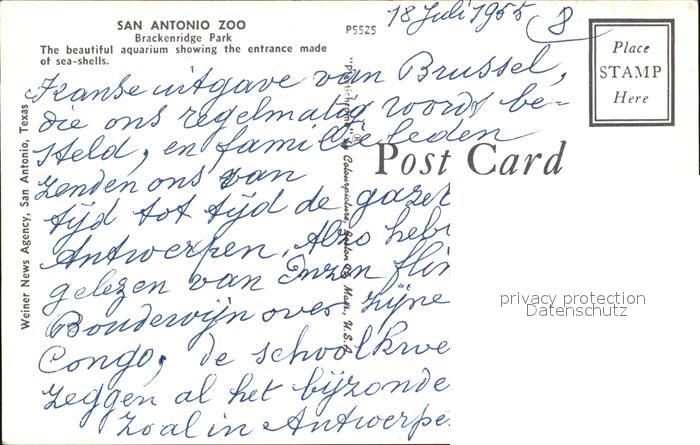 SAN ANTONIO ZOO
Brackenridge Park
The beautiful aquarium showing the entrance made
of sea-shells.
P5525
18 Juli 1955
8
Place
STAMP
Here
Post Card
Weiner News Agency, San Antonio, Texas
"Plastichrome" ® by Colourpicture, Boston 15, Mass., U.S.A.
uitgave van Brussel,
die ons regelmatig wordt be-
steld, en familieleden
zenden ons van
tijd tot tijd de gazet
Antwerpen. Alzo heb
gelezen van Onzen
Boudewijn over zijne
Congo, de
zeggen al het bijzonde
Zoal in Antwerpe
privacy protection
Datenschutz